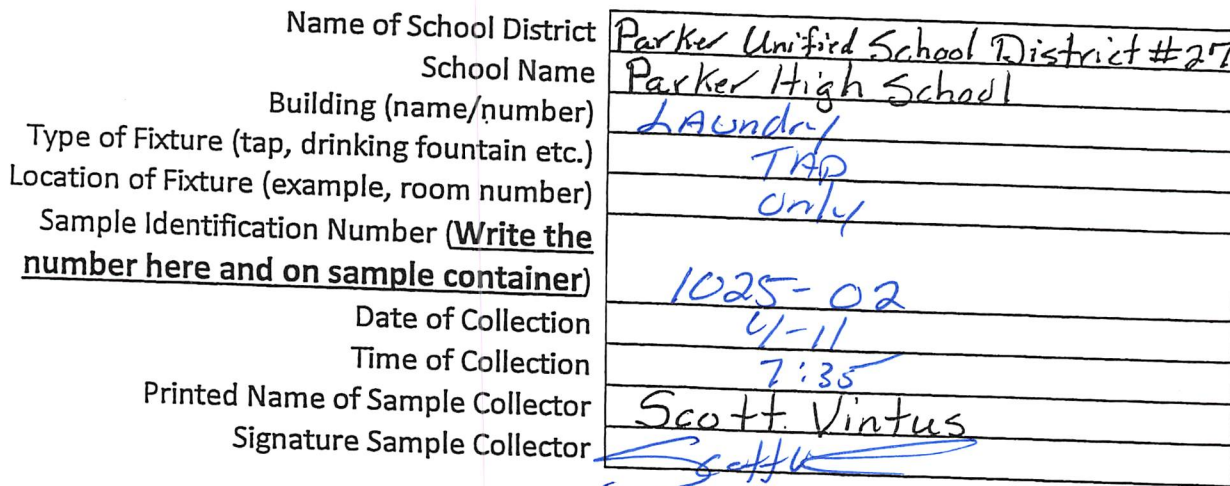 Name of School District Parker Unified School District #27
School Name Parker High School
Building (name/number) LAundry
Type of Fixture (tap, drinking fountain etc.) TAP
Location of Fixture (example, room number) only
Sample Identification Number (Write the
number here and on sample container) 1025-02
Date of Collection 4-11
Time of Collection 7:35
Printed Name of Sample Collector Scott Vintus
Signature Sample Collector Scott V